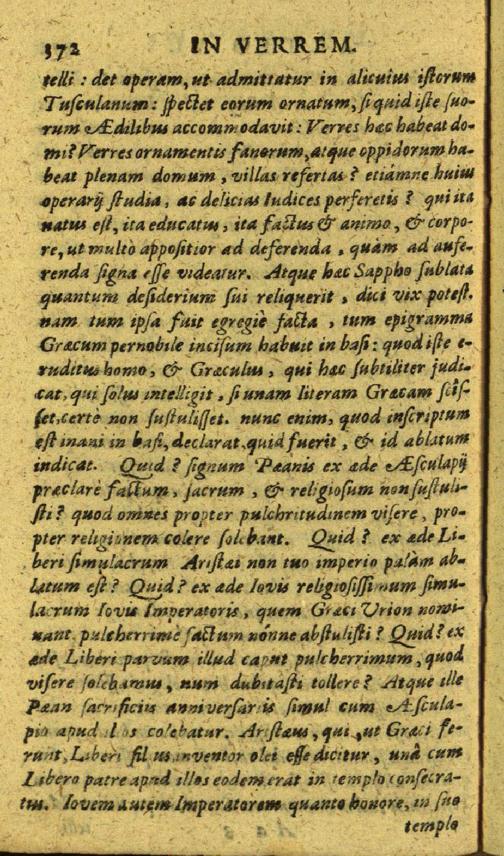 372 IN VERREM.
telli : det operam, ut admittatur in alicuius istorum
Tusculanum: spectet eorum ornatum, si quid iste suo-
rum Ædilibus accommodavit: Verres hæc habeat do-
mi? Verres ornamentis fanorum, atque oppidorum ha-
beat plenam domum, villas refertas? etiamne huius
operarij studia, ac delicias Iudices perferetis? qui ita
natus est, ita educatus, ita factus & animo, & corpo-
re, ut multò appositior ad deferenda, quàm ad aufe-
renda signa esse videatur. Atque hæc Sappho sublata
quantum desiderium sui reliquerit, dici vix potest.
nam tum ipsa fuit egregiè facta, tum epigramma
Græcum pernobile incisum habuit in basi: quod iste e-
ruditus homo, & Græculus, qui hæc subtiliter judi-
cat, qui solus intelligit, si unam literam Græcam scîs-
set, certè non sustulisset. nunc enim, quod inscriptum
est inani in basi, declarat, quid fuerit, & id ablatum
indicat. Quid? signum Pæanis ex æde Æsculapij
præclarè factum, sacrum, & religiosum non sustuli-
sti? quod omnes propter pulchritudinem visere, pro-
pter religionem colere solebant. Quid? ex æde Li-
beri simulacrum Aristæi non tuo imperio palàm ab-
latum est? Quid? ex æde Iovis religiosissimum simu-
lacrum Iovis Imperatoris, quem Græci Urion nomi-
nant, pulcherrimè factum nónne abstulisti? Quid? ex
æde Liberi parvum illud caput pulcherrimum, quod
visere solebamus, num dubitâsti tollere? Atque ille
Pæan sacrificiis anniversariis simul cum Æscula-
pio apud illos colebatur. Aristæus, qui, ut Græci fe-
runt, Liberi filius inventor olei esse dicitur, unà cum
Libero patre apud illos eodem erat in templo consecra-
tus. Iovem autem Imperatorem quanto honore, in suo
templo